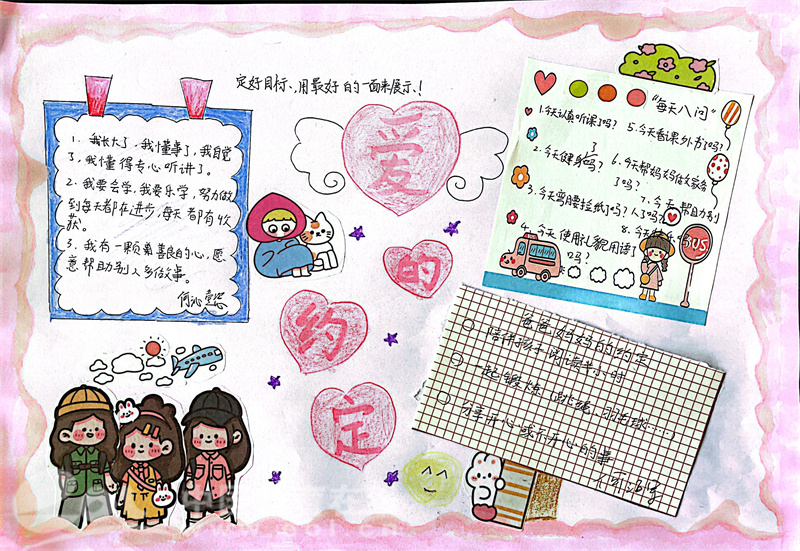 定好目标、用最好的一面来展示！
1. 我长大了，我懂事了，我自觉
了，我懂得专心听讲了。
2. 我要会学，我要乐学，努力做
到每天都在进步，每天都有收
获。
3. 我有一颗善良的心，愿
意帮助别人多做事。
爱
的
约
定
"每天八问"
1. 今天认真听课了吗？
2. 今天健身了吗？
3. 今天弯腰捡纸了吗？
4. 今天使用礼貌用语了
吗？
5. 今天看课外书了吗？
6. 今天帮妈妈做家务
了吗？
7. 今天帮助别
人了吗？
8. 今天
BUS
爸爸妈妈的约定
陪伴孩子阅读半小时
一起锻炼（跳绳、羽毛球……）
分享开心或不开心的事